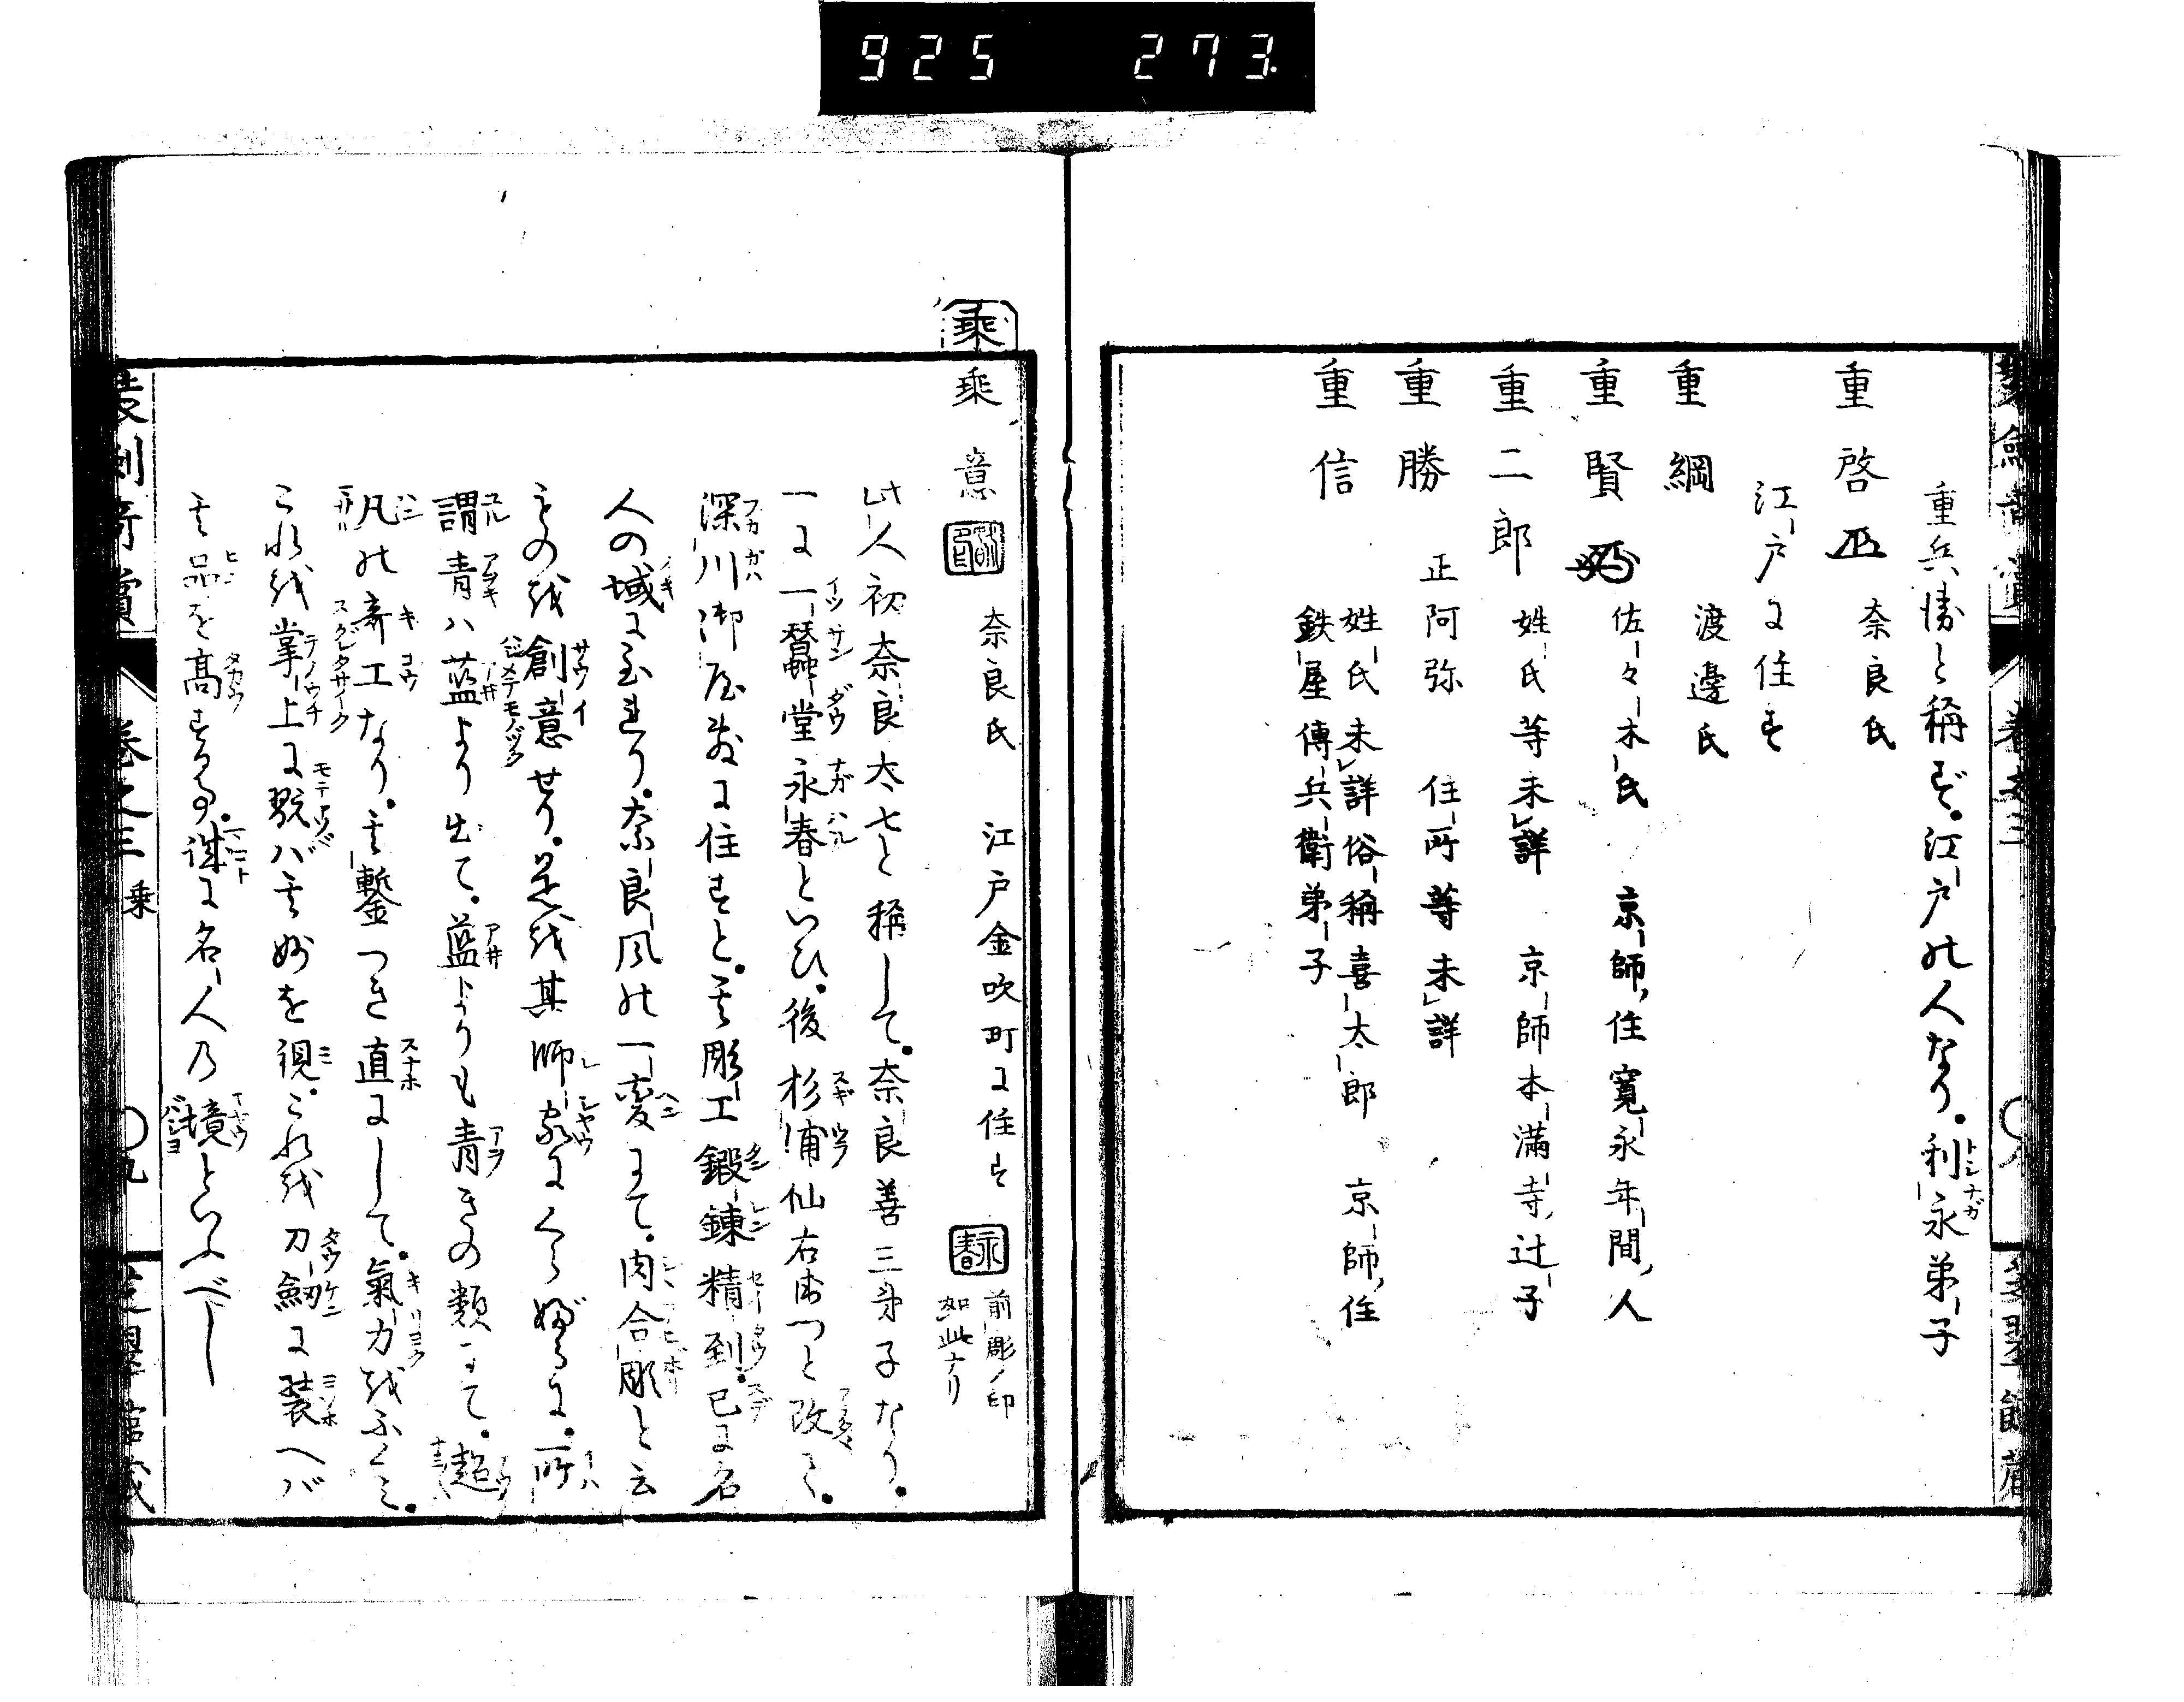 925 273
重兵衛と稱ず。江戸の人なり。利永弟子
重啓 奈良氏
江戸に住す
重綱 渡邊氏
重賢 佐々木氏 京師住寛永年間人
重二郎 姓氏等未詳 京師本満寺辻子
重勝 正阿弥 住所等未詳
重信 姓氏未詳俗稱喜太郎 京師住
鉄屋傳兵衛弟子
乘
乘意 奈良氏 江戸金吹町に住す 永春 前彫ノ印
如此ナリ
此人初奈良太七と稱して。奈良善三身子なり。
一に一蠶堂永春といひ。後杉浦仙右衛門と改む。
深川御屋敷に住すと。其彫工鍛錬精到。已に名
人の域に至れり。奈良風の一変にて。肉合彫と云
ものを創意せり。是を其師家にくらぶるに。所
謂青ハ藍より出て。藍よりも青きの類にて。超
凡の奇工なり。其鏨つき直にして。氣力をふくみ。
これを掌上に翫バ其妙を視。これを刀劒に装へバ
其品を高する。誠に名人乃境といふべし
装劍奇賞 卷之三 乘 〇九